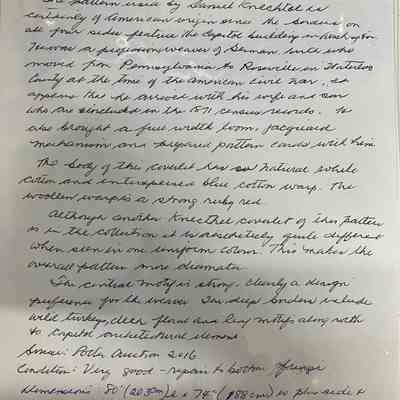 The pattern used by Samuel Knechtel is
certainly of American origin since the borders on
all four sides feature the Capitol building in Washington
was a professional weaver of German birth who
moved from Pennsylvania to Roseville in Waterloo
County at the time of the American Civil War, it
appears that he arrived with his wife and son
who are included in the 1871 census records. He
also brought a full width loom, jacquard
mechanism and prepared pattern cards with him.
The body of this coverlet has natural white
cotton and interspersed blue cotton warp. The
woollen warp is a strong ruby red.
Although another Knechtel coverlet of this pattern
is in the collection it is aesthetically quite different
when seen in one uniform colour. This makes the
overall pattern more decorative
The central motif is strong, clearly a design
preference for the weaver. The deep borders include
wild turkeys, deer, floral and leaf motifs along with
to Capitol architectural element
Source: Potter Auction 2016
Condition: Very good - repairs to bottom fringe
Dimensions: 80" (203cm) L x 74" (188cm) w plus side +